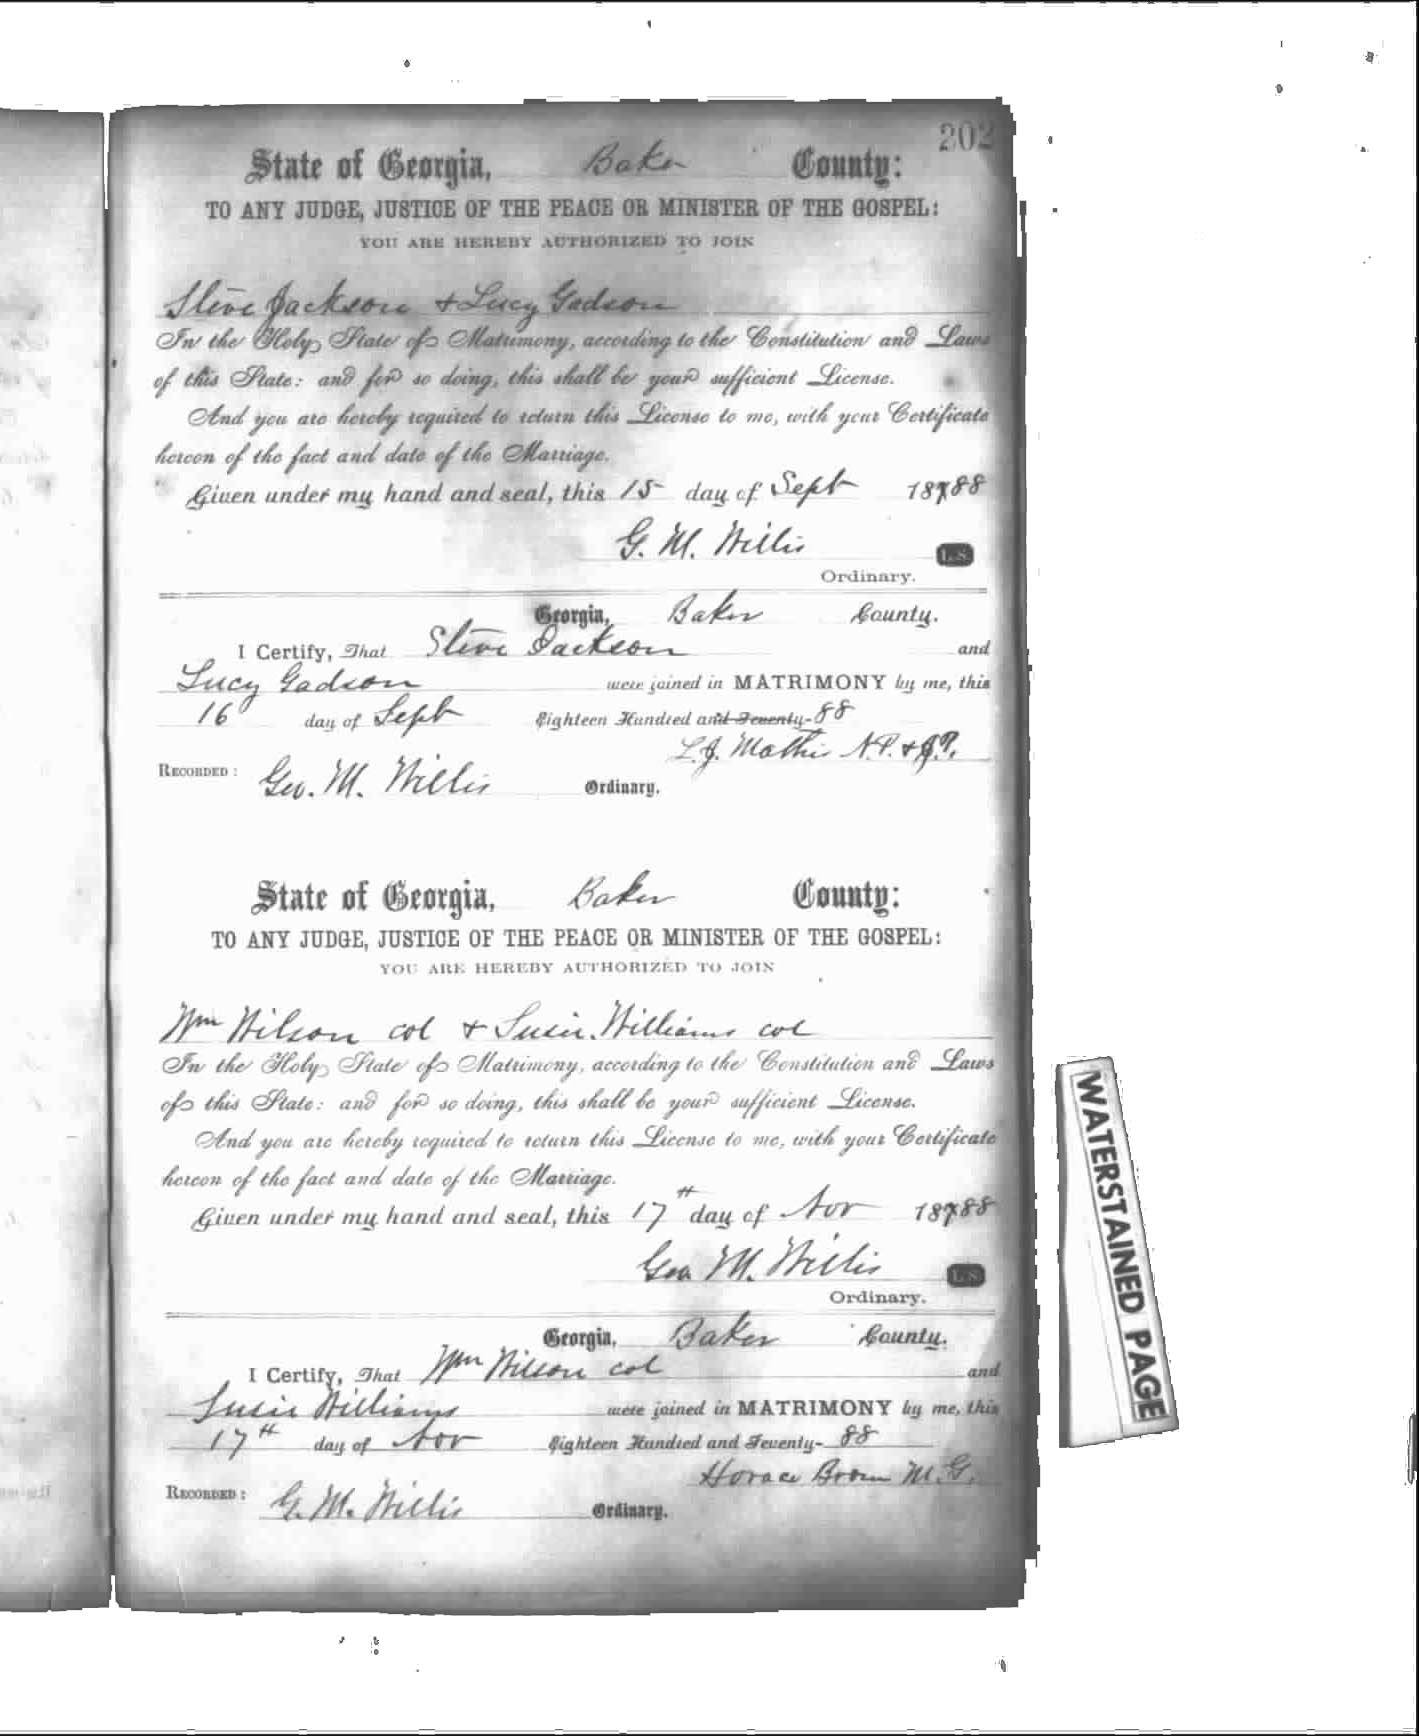 202
State of Georgia, Baker County:
TO ANY JUDGE, JUSTICE OF THE PEACE OR MINISTER OF THE GOSPEL:
YOU ARE HEREBY AUTHORIZED TO JOIN
Steve Jackson & Lucy Gadson
In the Holy State of Matrimony, according to the Constitution and Laws
of this State: and for so doing, this shall be your sufficient License.
And you are hereby required to return this License to me, with your Certificate
hereon of the fact and date of the Marriage.
Given under my hand and seal, this 15 day of Sept 18788
G. M. Willis L.S.
Ordinary.
Georgia, Baker County.
I Certify, That Steve Jackson and
Lucy Gadson were joined in MATRIMONY by me, this
16 day of Sept Eighteen Hundred and Seventy-88
L. J. Mathis N.P. & J.P.
RECORDED: Geo. M. Willis Ordinary.
State of Georgia, Baker County:
TO ANY JUDGE, JUSTICE OF THE PEACE OR MINISTER OF THE GOSPEL:
YOU ARE HEREBY AUTHORIZED TO JOIN
Wm Wilson col & Susie Williams col
In the Holy State of Matrimony, according to the Constitution and Laws
of this State: and for so doing, this shall be your sufficient License.
And you are hereby required to return this License to me, with your Certificate
hereon of the fact and date of the Marriage.
Given under my hand and seal, this 17th day of Nov 18788
Geo M. Willis L.S.
Ordinary.
Georgia, Baker County.
I Certify, That Wm Wilson col and
Susie Williams were joined in MATRIMONY by me, this
17th day of Nov Eighteen Hundred and Seventy-88
Horace Brown M.G.
RECORDED: G. M. Willis Ordinary.
WATERSTAINED PAGE